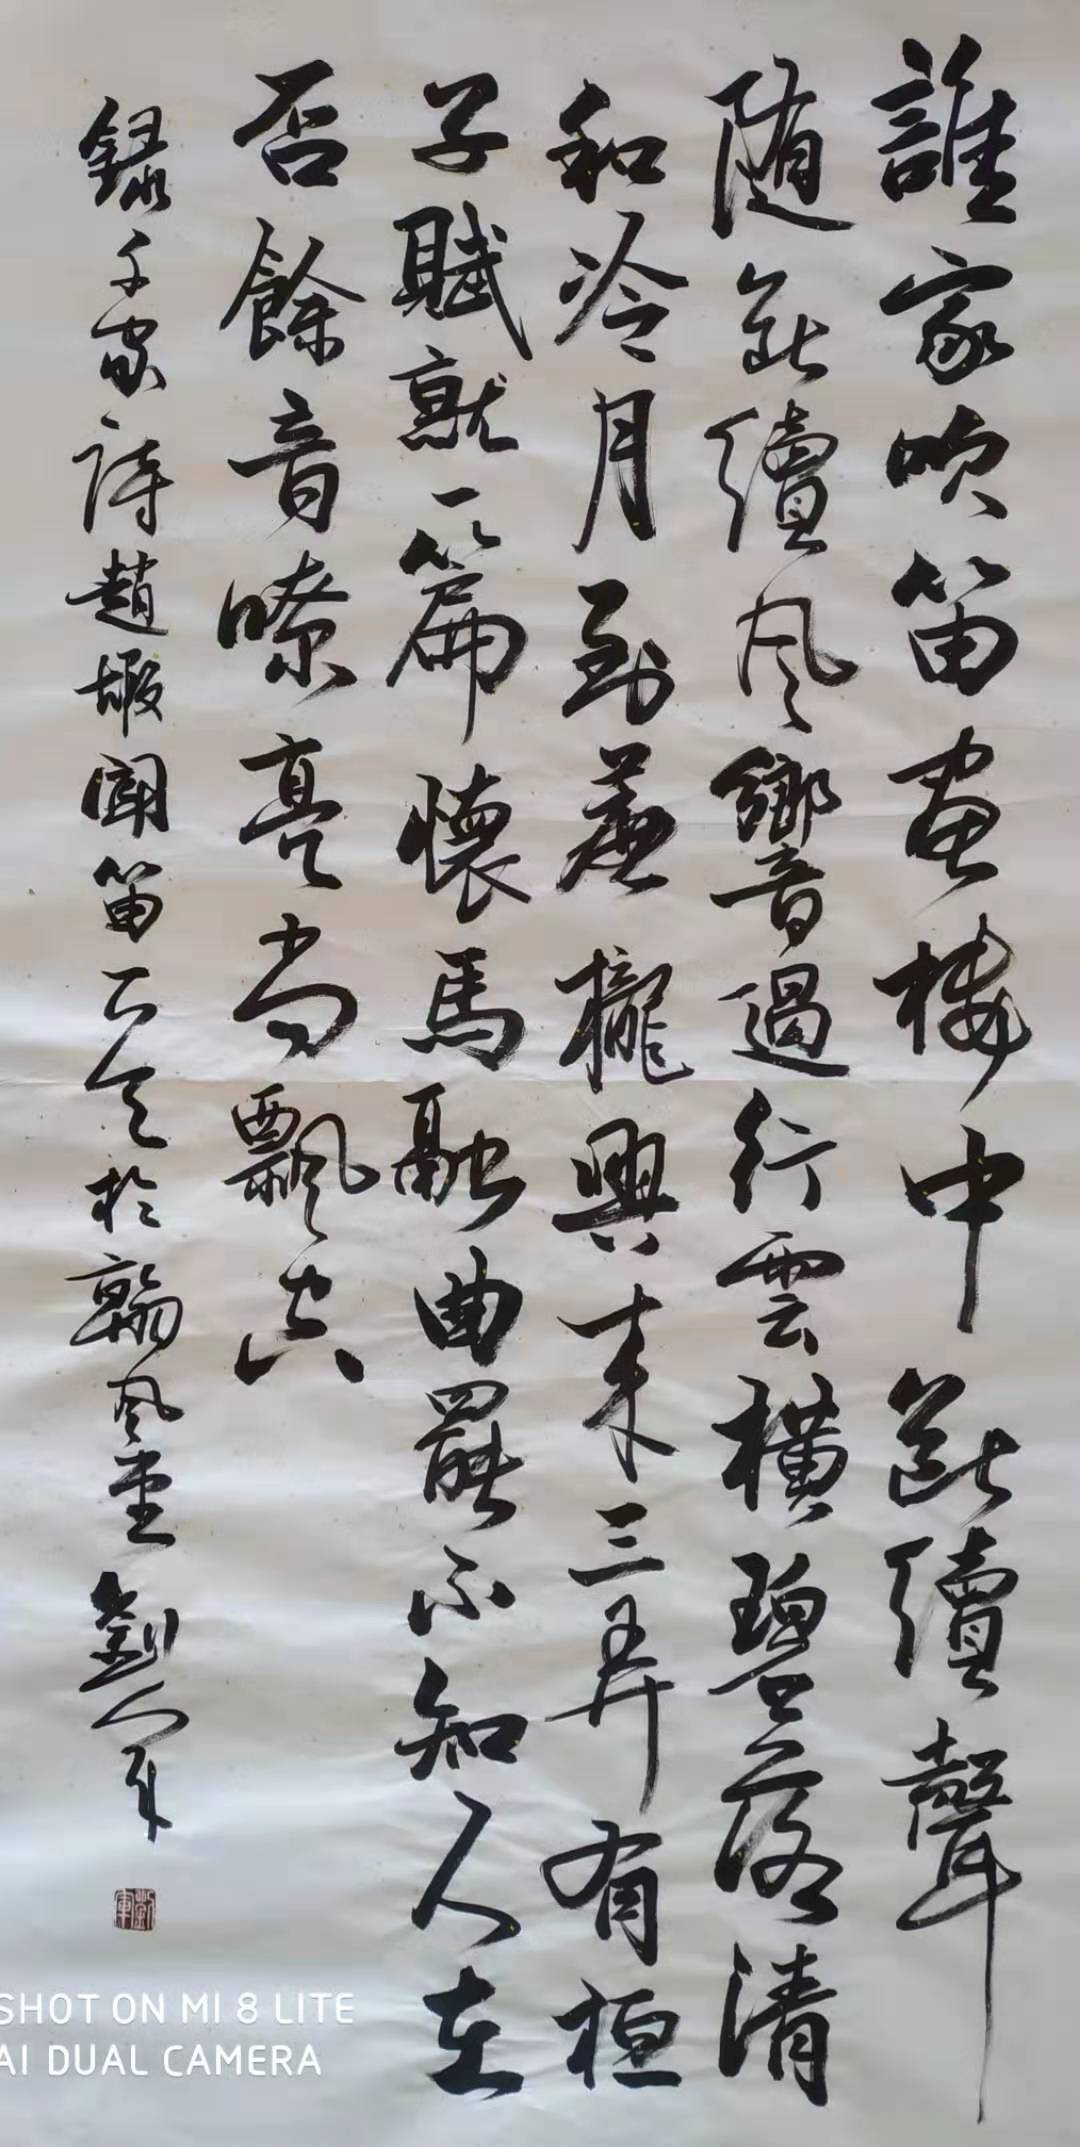 誰家吹笛畫樓中斷續聲
随斷續風響遏行雲橫碧落清
和冷月到簾櫳興来三弄有桓
子賦就一篇懷馬融曲罷不知人在
否餘音嘹亮尚飄空
錄千家詩趙嘏聞笛於翰風堂劉军
劉軍
SHOT ON MI 8 LITE
AI DUAL CAMERA